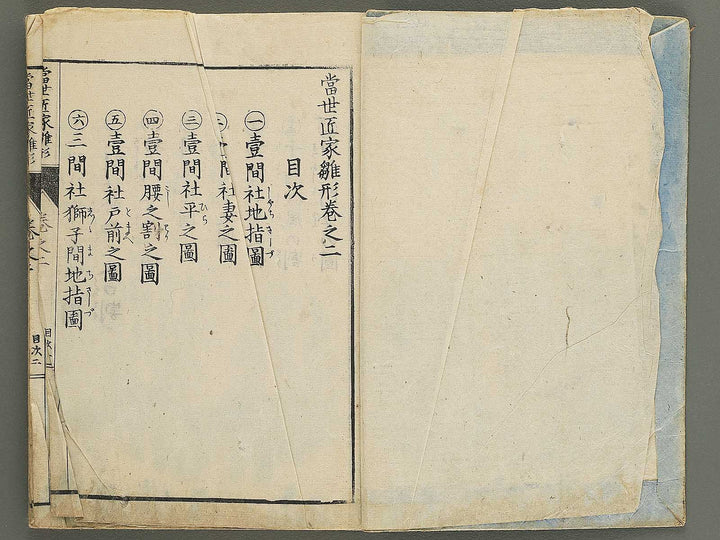 當世匠家雛形卷之二
目次
㊀壹間社地指圖
間社妻之圖
㊂壹間社平之圖
㊃壹間腰之割之圖
㊄壹間社戸前之圖
㊅三間社獅子間地指圖
目次二